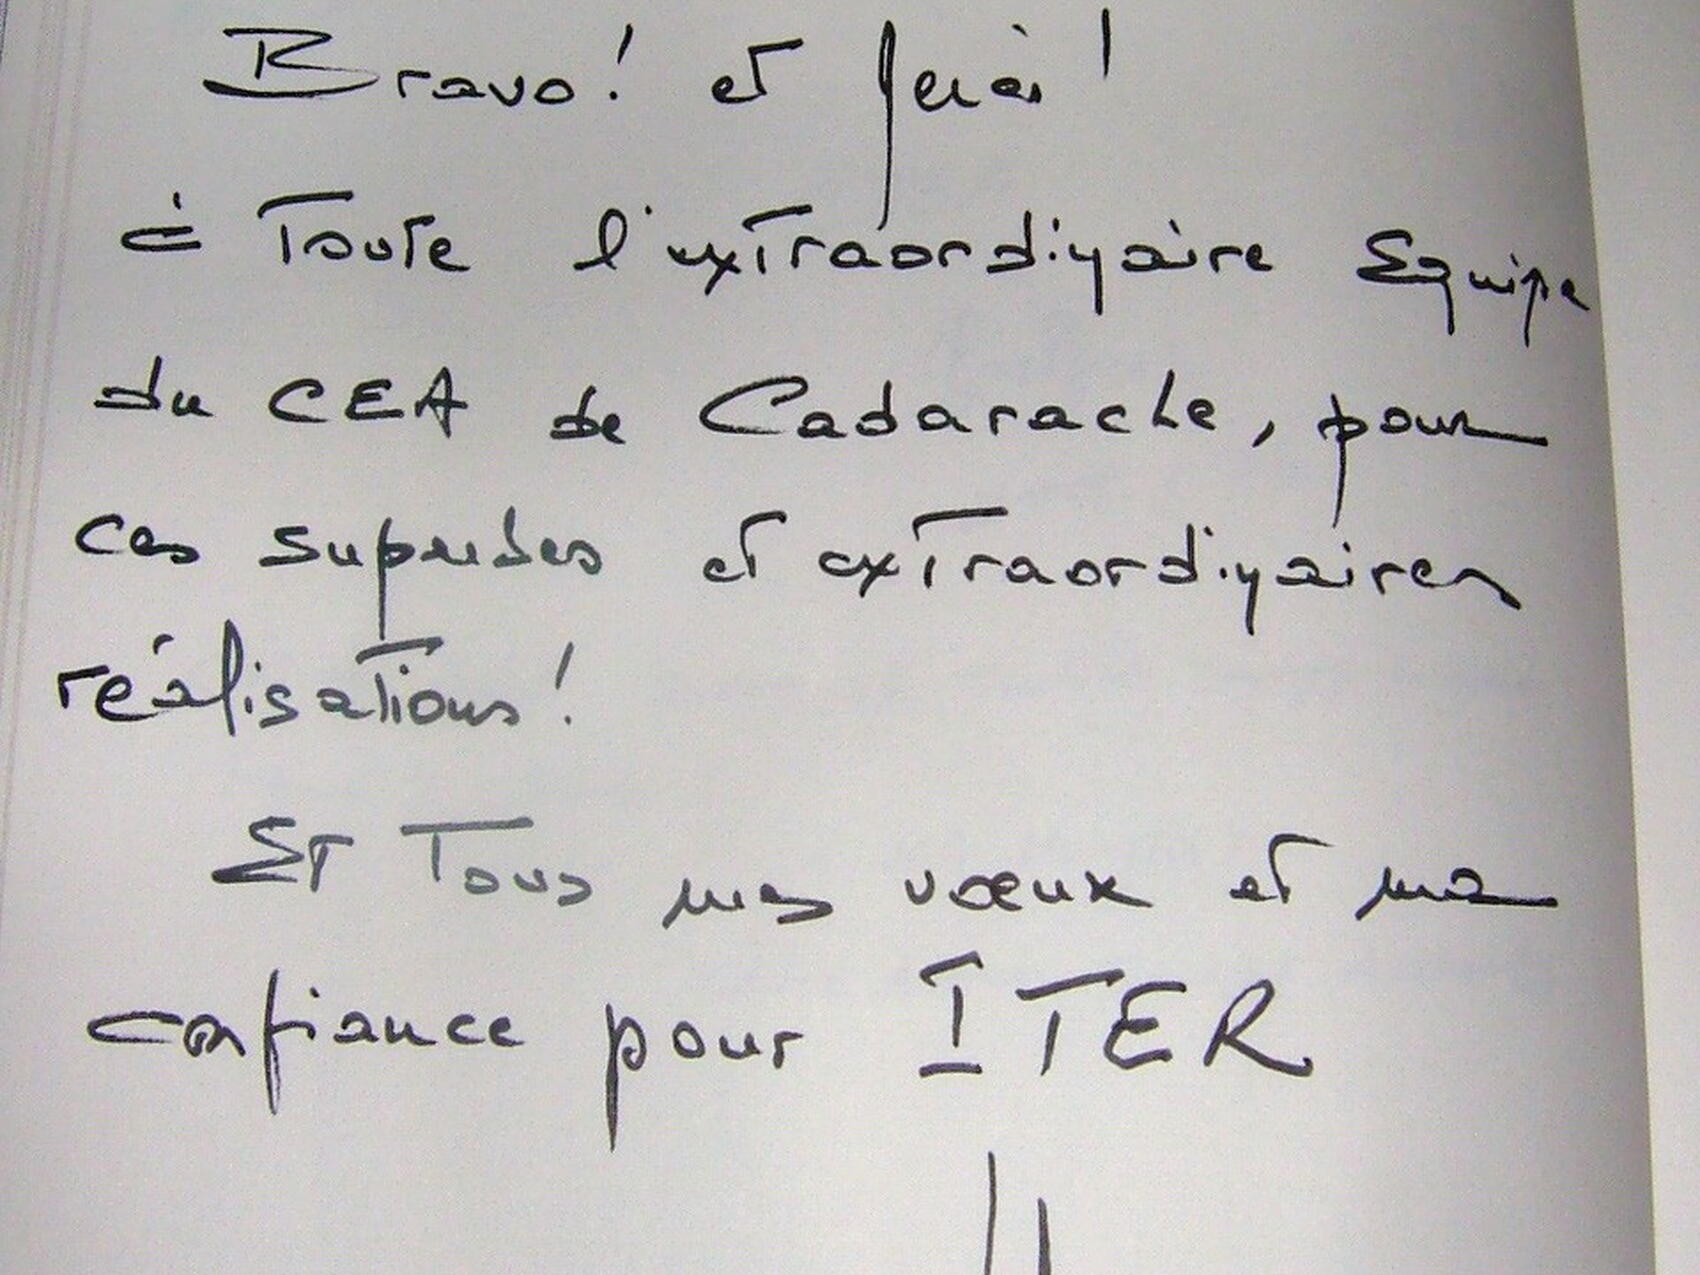 Bravo! et Merci!
à Toute l'extraordinaire Equipe
du CEA de Cadarache, pour
ces superbes et extraordinaires
réalisations!
Et Tous mes vœux et ma
confiance pour ITER